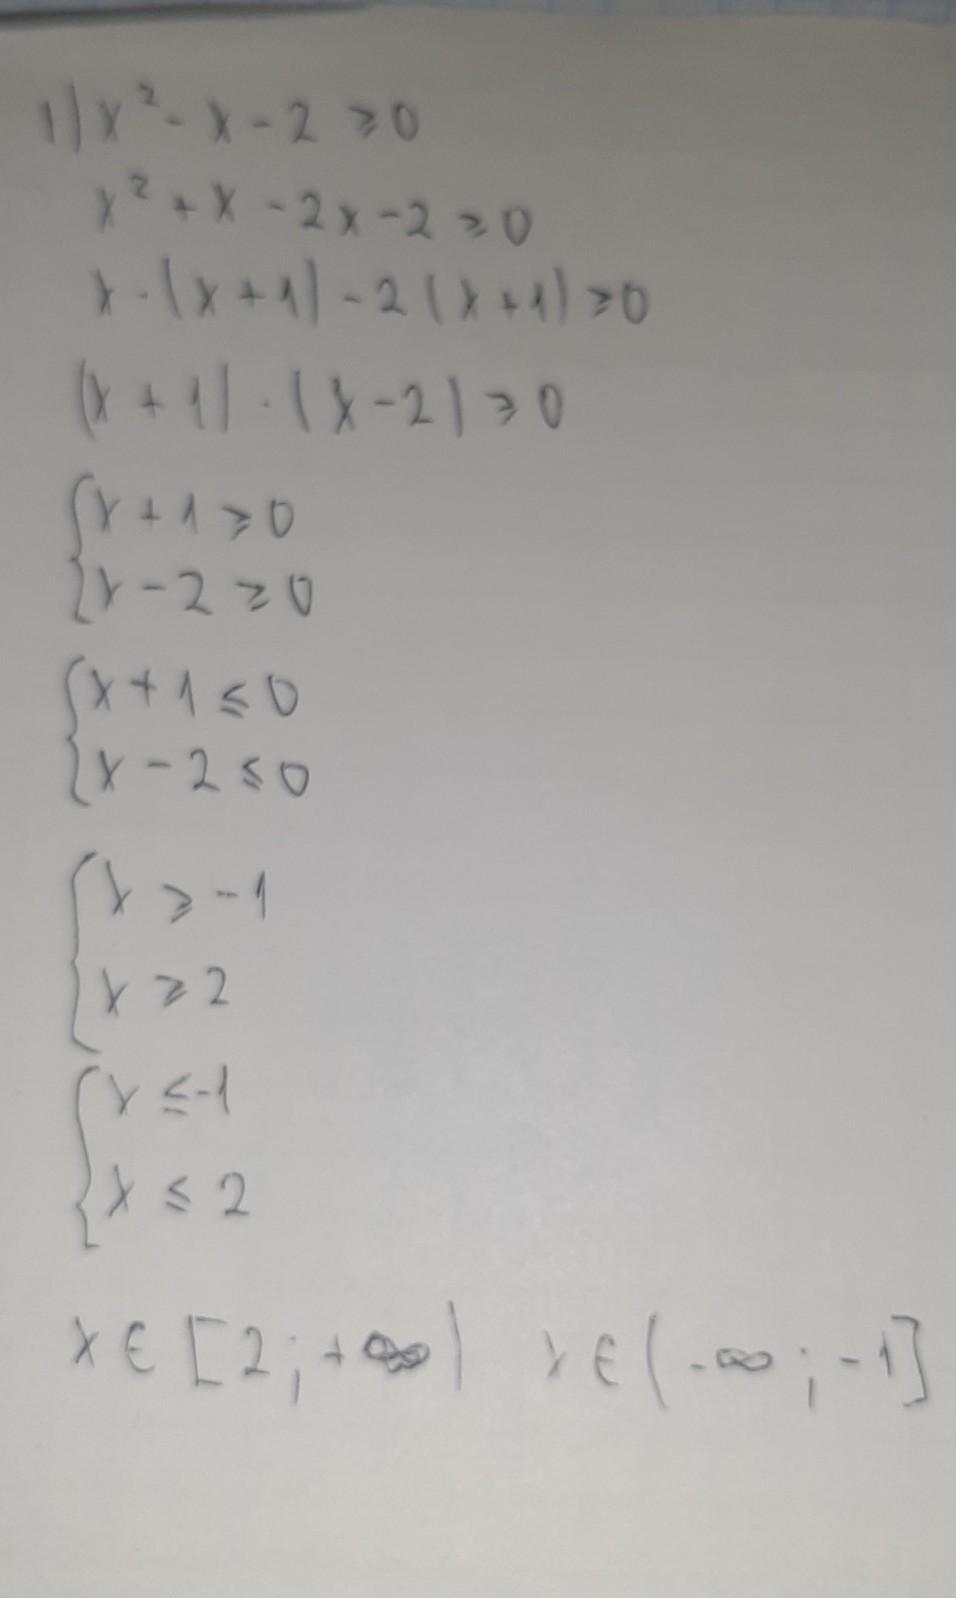 1) x² - x - 2 ⩾ 0
x² + x - 2x - 2 ⩾ 0
x · (x + 1) - 2 (x + 1) ⩾ 0
(x + 1) · (x - 2) ⩾ 0
{ x + 1 ⩾ 0
x - 2 ⩾ 0
{ x + 1 ⩽ 0
x - 2 ⩽ 0
{ x ⩾ -1
x ⩾ 2
{ x ⩽ -1
x ⩽ 2
x ∈ [2; +∞) x ∈ (-∞; -1]